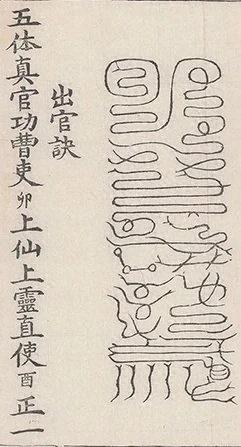 五体真官功曹吏卯上仙上靈直使酉正一
出官訣